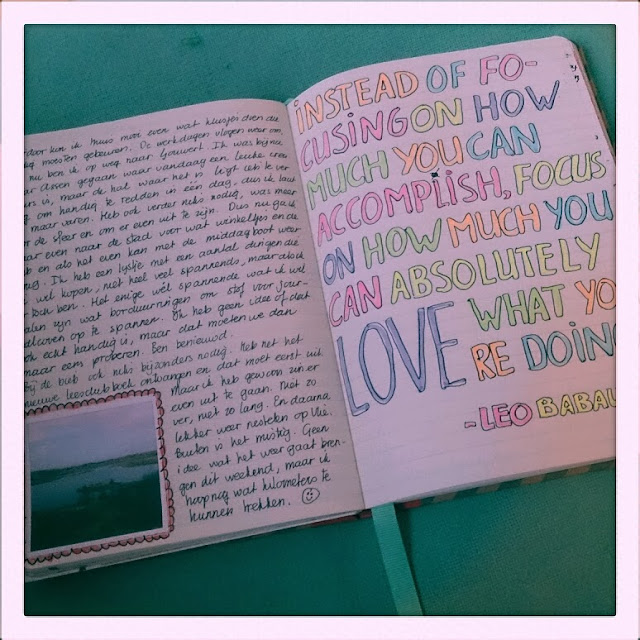 door kon ik thuis mooi even wat klusjes doen die
moesten gebeuren. De werkdagen vlogen weer om,
nu ben ik op weg naar
gegaan waar vandaag een leuke crea
is, maar de hal waar het is ligt iets te ver
om handig te redden in één dag, dus ik laat
maar varen. Heb ook verder niks nodig, was meer
de sfeer en om er even uit te zijn. Dus nu ga ik
even naar de stad voor wat winkeltjes en de
en als het even kan met de middagboot weer
Ik heb een lijstje met een aantal dingen die
wil kopen, niet heel veel spannends, maar als ik
toch ben. Het enige wél spannende wat ik wil
zijn wat borduurringen om stof voor jour-
op te spannen. Ik heb geen idee of dat
echt handig is, maar dat moeten we dan
maar eens proberen. Ben benieuwd.
Bij de bieb ook niks bijzonders nodig. Heb net het
nieuwe leesclubboek ontvangen en dat moet eerst uit.
Maar ik heb gewoon zin er
even uit te gaan. Niet zo
ver, niet zo lang. En daarna
lekker weer nestelen op Vlie.
Buiten is het mistig. Geen
idee wat het weer gaat bren-
gen dit weekend, maar ik
hoop nog wat kilometers te
kunnen trekken.
INSTEAD OF FO-
CUSING ON HOW
MUCH YOU CAN
ACCOMPLISH, FOCUS
ON HOW MUCH YOU
CAN ABSOLUTELY
LOVE WHAT YO
RE DOING
- LEO BABAU